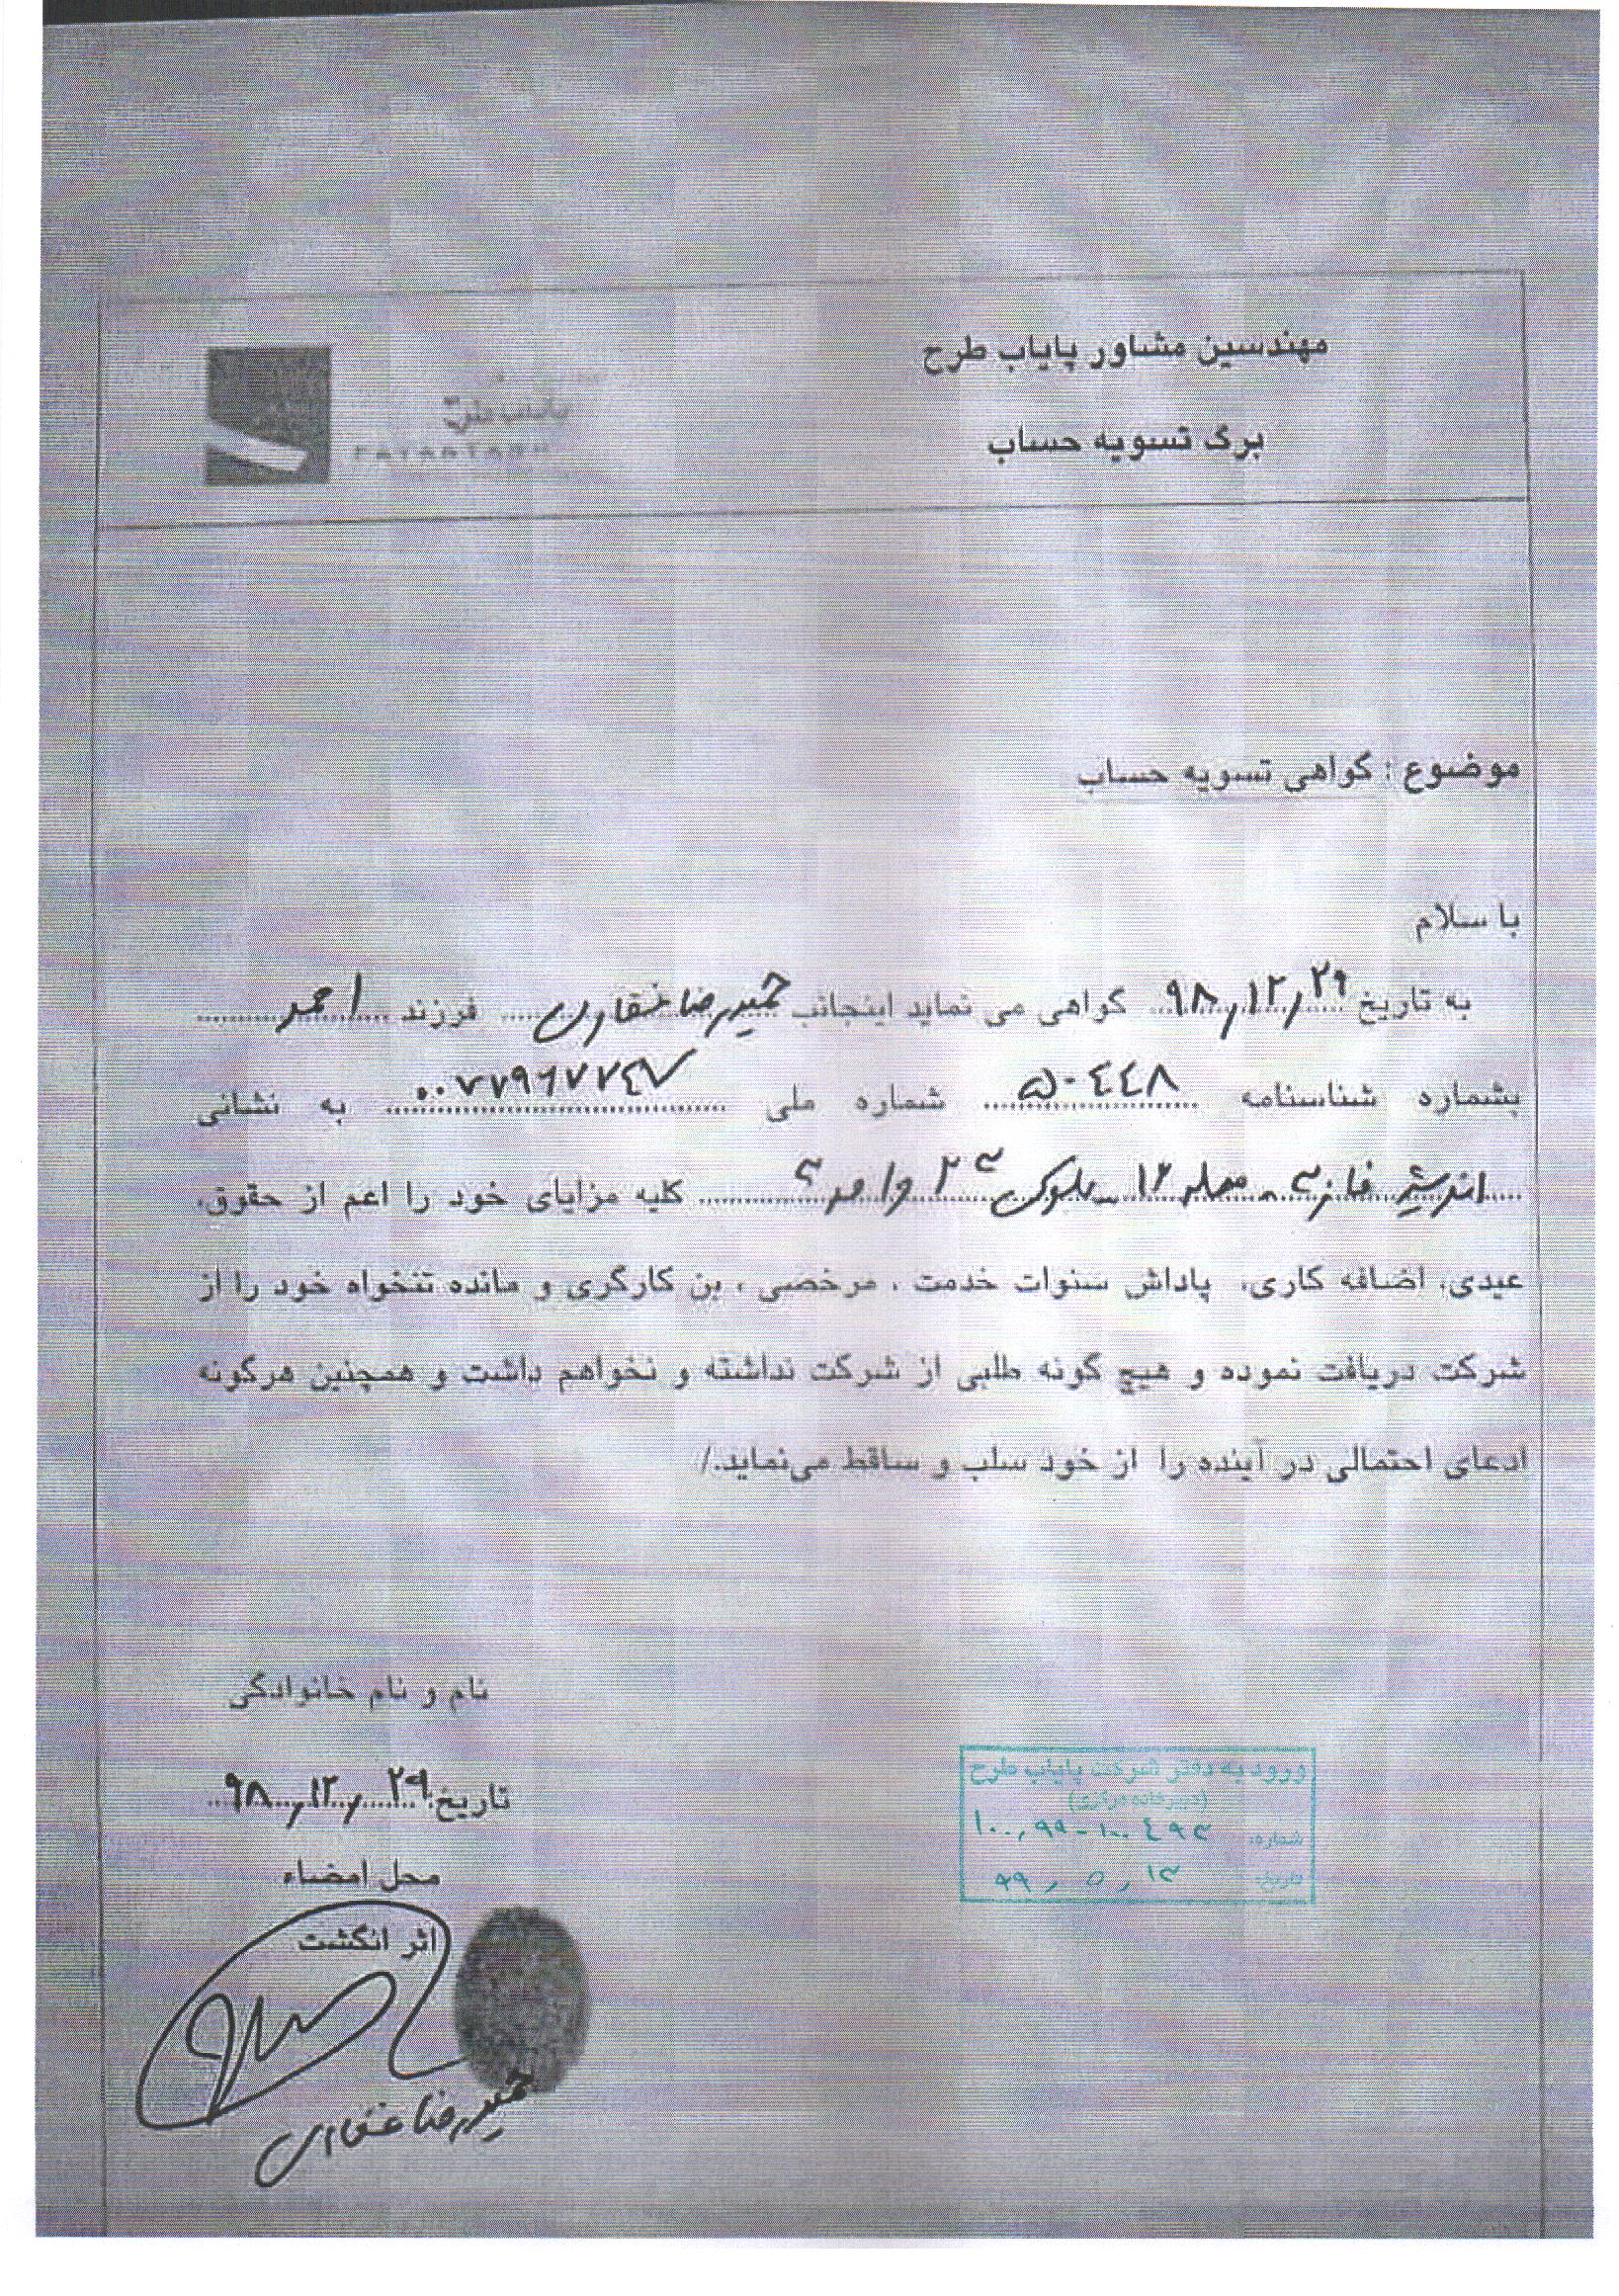 مهندسین مشاور پایاب طرح
برگ تسویه حساب
پایاب طرح
PAYABTARH
موضوع : کواهی تسویه حساب
با سلام
به تاریخ ۹۸/۱۲/۲۹ کواهی می نماید اینجانب حمیدرضا غفاری فرزند احمد
بشماره شناسنامه ۵۰۴۴۸ شماره ملی به نشانی
اندیشه فاز ۳ - محله ۱۲ - بلوک ۲۳ واحد ۳ کلیه مزایای خود را اعم از حقوق،
عیدی، اضافه کاری، پاداش سنوات خدمت ، مرخصی ، بن کارگری و مانده تنخواه خود را از
شرکت دریافت نموده و هیچ گونه طلبی از شرکت نداشته و نخواهم داشت و همچنین هرگونه
ادعای احتمالی در آینده را از خود سلب و ساقط می‌نماید./
نام و نام خانوادگی
تاریخ ۹۸/۱۲/۲۹
محل امضاء
اثر انگشت
حمیدرضا غفاری
ورود به دفتر شرکت پایاب طرح
(دبیرخانه مرکزی)
شماره: ۱۰۰/۹۹-۱۰۰۴۹۳
تاریخ: ۹۹/۵/۱۳